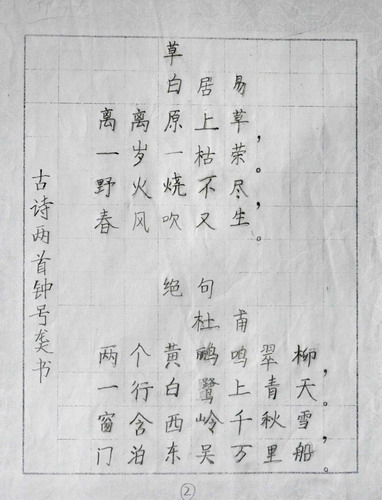 草
白居易
离离原上草，
一岁一枯荣。
野火烧不尽，
春风吹又生。
绝句
杜甫
两个黄鹂鸣翠柳，
一行白鹭上青天。
窗含西岭千秋雪，
门泊东吴万里船。
古诗两首钟号龚书
②